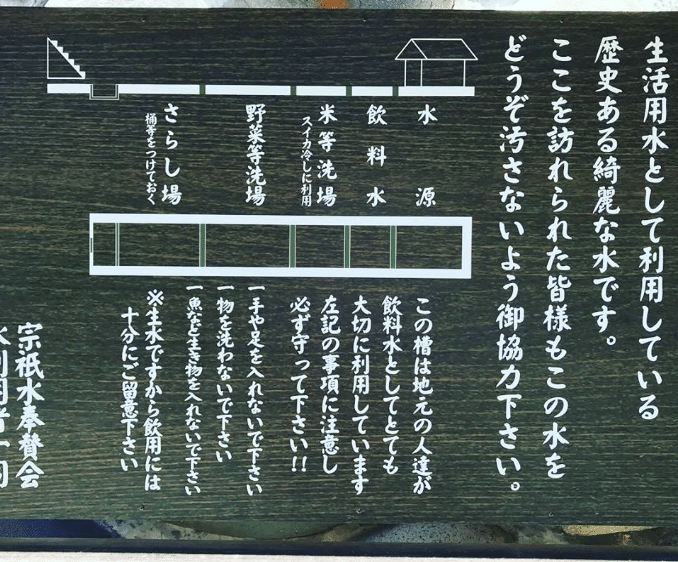 生活用水として利用している
歴史ある綺麗な水です。
ここを訪れられた皆様もこの水を
どうぞ汚さないよう御協力下さい。
水源
飲料水
米等洗場
スイカ冷しに利用
野菜等洗場
さらし場
桶等をつけておく
この槽は地元の人達が
飲料水としてとても
大切に利用しています
左記の事項に注意し
必ず守って下さい!!
一手や足を入れないで下さい
一物を洗わないで下さい
一魚など生き物を入れないで下さい
※生水ですから飲用には
十分にご留意下さい
宗祇水奉賛会
水利用者一同